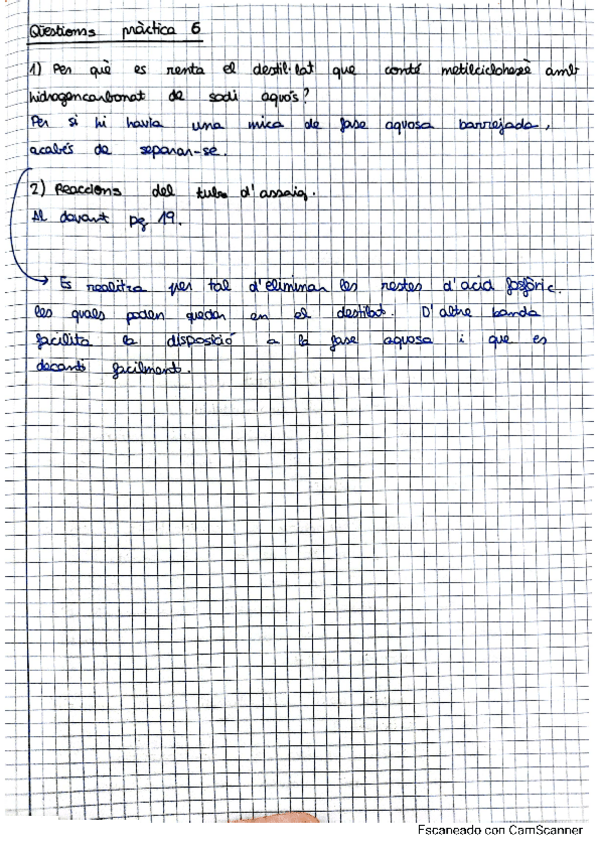 Qüestions pràctica 6
1) Per què es renta el destil·lat que conté metilciclohexè amb
hidrogencarbonat de sodi aquós?
Per si hi havia una mica de fase aquosa barrejada,
acabés de separar-se.
2) Reaccions del tub d'assaig.
Al davant pg 19.
→ Es realitza per tal d'eliminar les restes d'acid fosfòric.
les quals poden quedar en el destilat. D'altre banda
facilita la disposició a la fase aquosa i que es
decanti facilment.
Escaneado con CamScanner